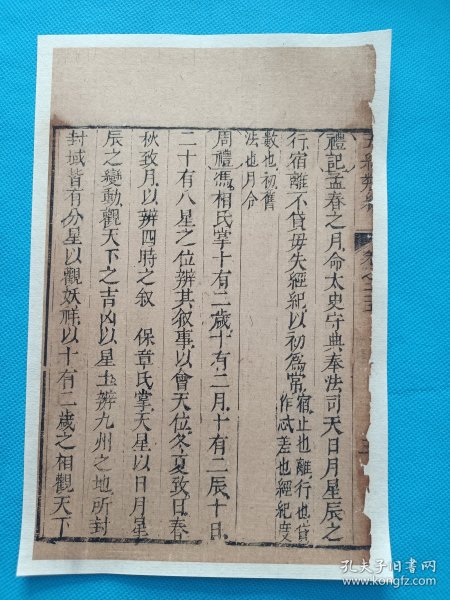 禮記孟春之月命太史守典奉法司天日月星辰之
行宿離不貸毋失經紀以初爲常宿止也離行也貸
作忒差也經紀度
數也初舊
法也月令
周禮馮相氏掌十有二歲十有二月十有二辰十日
二十有八星之位辨其叙事以會天位冬夏致日春
秋致月以辨四時之叙 保章氏掌天星以日月星
辰之變動觀天下之吉凶以星土辨九州之地所封
封域皆有分星以觀妖祥以十有二歲之相觀天下
孔夫子旧书网
book.kongfz.com